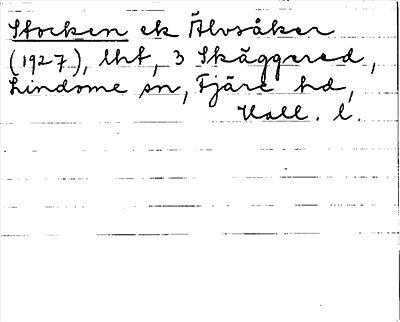 Stocken ek Älvsåker
(1927), lht, 3 Skäggered,
Lindome sn, Fjäre hd,
Hall. l.